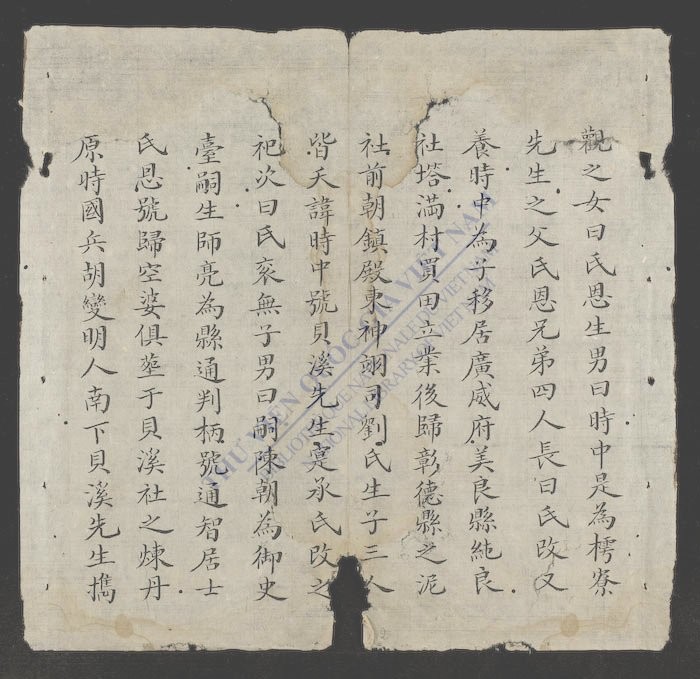 觀之女曰氏恩生男曰時中是為樗寮
先生之父氏恩兄弟四人長曰氏改又
養時中為子移居廣威府美良縣純良
社塔滿村買田立業後歸彰德縣之泥
社前朝鎮殿東神翊司劉氏生子三人
皆夭諱時中號貝溪先生寔承氏改之
祀次曰氏衮無子男曰嗣陳朝為御史
臺嗣生師亮為縣通判柄號通智居士
氏恩號歸空婆俱塟于貝溪社之煉丹
原時國兵胡變明人南下貝溪先生擕
THƯ VIỆN QUỐC GIA VIỆT NAM
BIBLIOTHÈQUE NATIONALE DU VIETNAM
NATIONAL LIBRARY OF VIETNAM